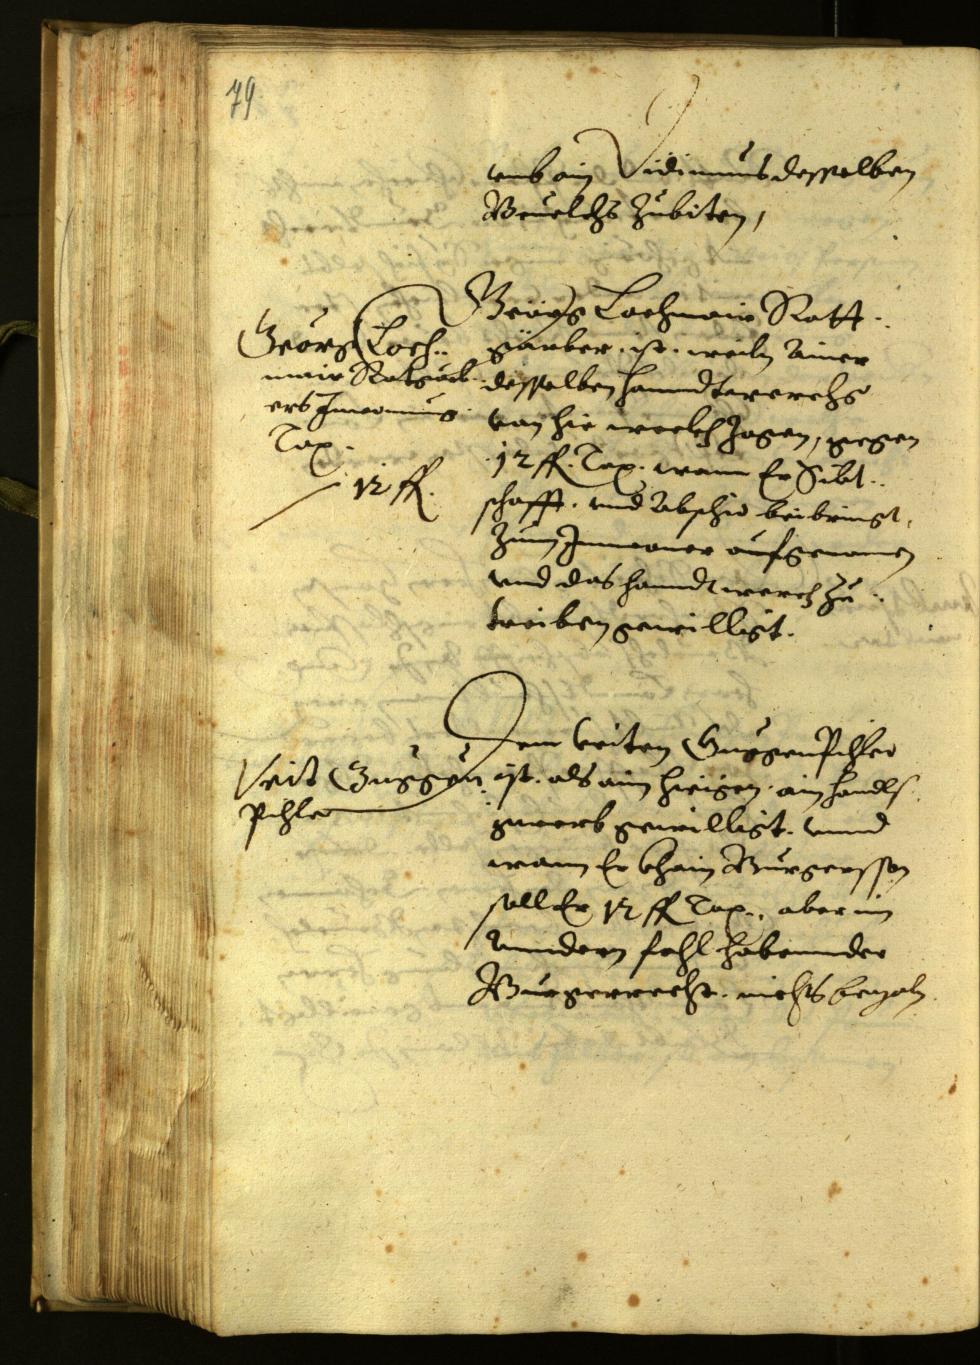 79
umb ain Vidimus desselben
Beuelchs zubiten,
Geörg Loch..
mair Rotgärb
ers Inwonung
Tax.
12 ff.
Geörg Lochmair Rott..
gärber. ist. weiln Ainer
desselben hanndtwerchs
von hie weckh zogen, gegen
12 ff. Tax. wann Er Sibt..
schafft. und Abschid beibringt,
zum Inwoner aufgenomen
und das hanndtwerch zu..
treiben gewilligt.
Veit Guggen
Pichler
Dem Veiten Guggenpichler
ist. als aim hieigen. ain handls
gwerb gewilligt. unnd
wann Er khain Burgersson
soll Er 12 ff Tax., aber im
anndern fahl habennder
Burgerrecht. nichts bezaln.